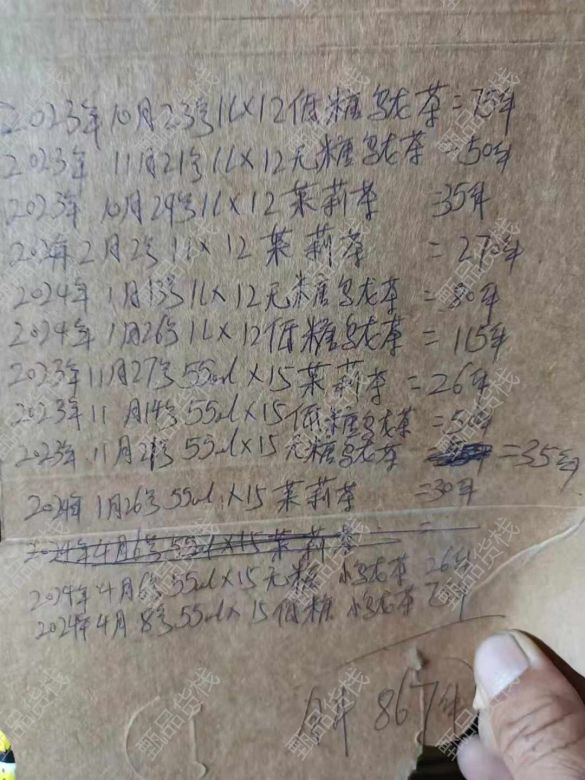 2023年10月23号1L×12低糖乌龙茶=75件
2023年11月21号1L×12无糖乌龙茶=50件
2023年10月29号1L×12茉莉茶=35件
2024年2月2号1L×12茉莉茶=270件
2024年1月13号1L×12无糖乌龙茶=80件
2024年1月26号1L×12低糖乌龙茶=115件
2023年11月27号55ml×15茉莉茶=26件
2023年11月14号55ml×15低糖乌龙茶=50件
2023年11月21号55ml×15无糖乌龙茶=35件
2024年1月26号55ml×15茉莉茶=30件
2024年4月6号55ml×15茉莉茶=
2024年4月 号55ml×15无糖 小乌龙茶 26件
2024年4月8号55ml×15低糖 小乌龙茶 75件
合计 867件
甄品货栈